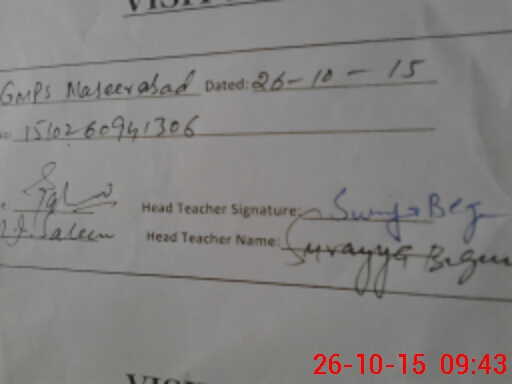 GMPS Naseerabad Dated: 26-10-15
1510260941306
Head Teacher Signature: Surayya Beg
M.J. Saleem Head Teacher Name: Surayya Begum
26-10-15 09:43